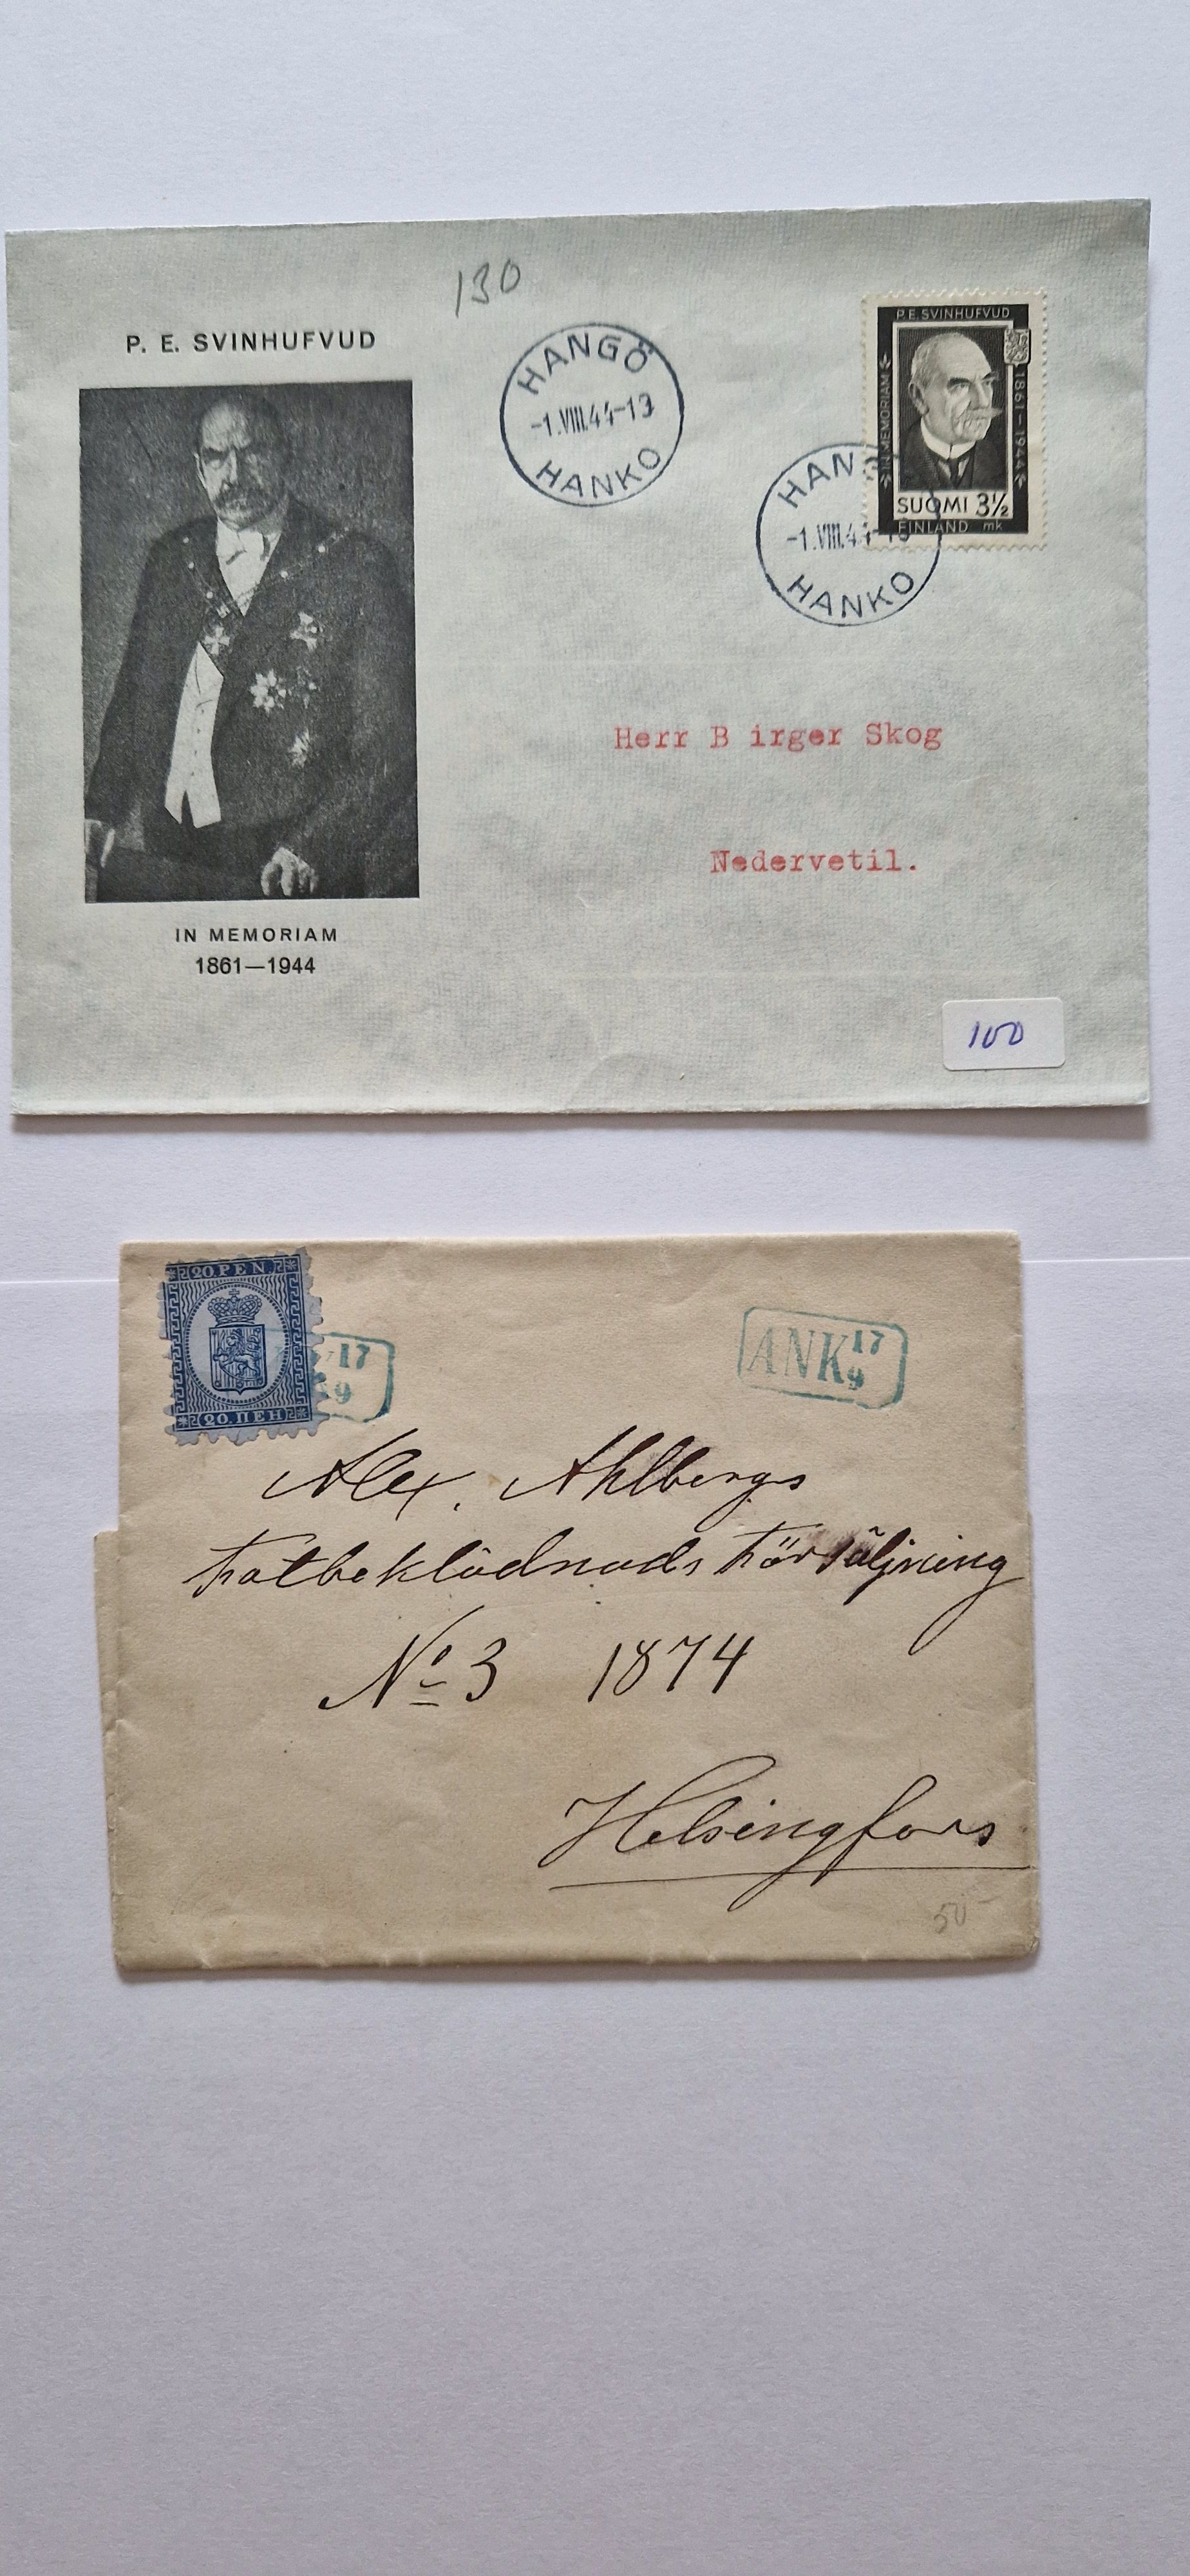 130
P. E. SVINHUFVUD
IN MEMORIAM
1861—1944
HANGÖ
-1.VIII.44-13
HANKO
P.E.SVINHUFVUD
IN MEMORIAM
1861–1944
SUOMI 3½
FINLAND mk
HANG
-1.VIII.44-
HANKO
Herr B irger Skog
Nedervetil.
100
20.PEN.
20.ПЕН.
17
9
ANK 17
9
Alex. Ahlbergs
Fotbeklädnads Försäljning
No 3 1874
Helsingfors
50